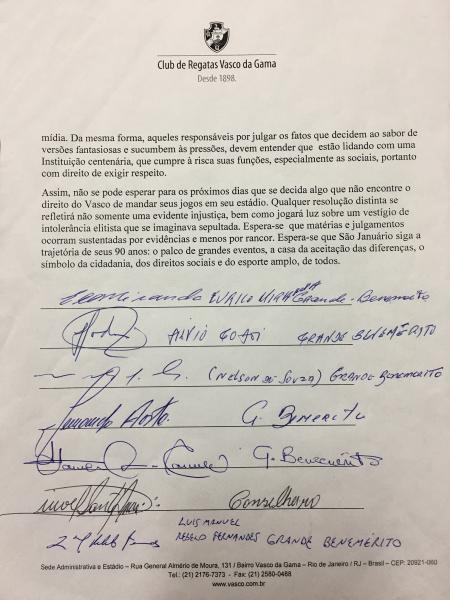 Club de Regatas Vasco da Gama
Desde 1898.
mídia. Da mesma forma, aqueles responsáveis por julgar os fatos que decidem ao sabor de
versões fantasiosas e sucumbem às pressões, devem entender que estão lidando com uma
Instituição centenária, que cumpre à risca suas funções, especialmente as sociais, portanto
com direito de exigir respeito.
Assim, não se pode esperar para os próximos dias que se decida algo que não encontre o
direito do Vasco de mandar seus jogos em seu estádio. Qualquer resolução distinta se
refletirá não somente uma evidente injustiça, bem como jogará luz sobre um vestígio de
intolerância elitista que se imaginava sepultada. Espera-se que matérias e julgamentos
ocorram sustentadas por evidências e menos por rancor. Espera-se que São Januário siga a
trajetória de seus 90 anos: o palco de grandes eventos, a casa da aceitação das diferenças, o
símbolo da cidadania, dos direitos sociais e do esporte amplo, de todos.
EURICO MIRANDA Grande-Benemerito
GRANDE BENEMÉRITO
(NELSON DE SOUZA) GRANDE BENEMERITO
G.
G. Benemérito
Conselheiro
LUIS MANUEL
REBELO FERNANDES GRANDE BENEMÉRITO
Sede Administrativa e Estádio – Rua General Almério de Moura, 131 / Bairro Vasco da Gama – Rio de Janeiro / RJ – Brasil – CEP: 20921-060
Tel.: (21) 2176-7373 - Fax: (21) 2580-0488
www.vasco.com.br